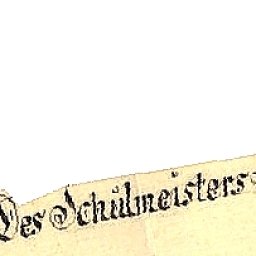 Des Schulmeisters